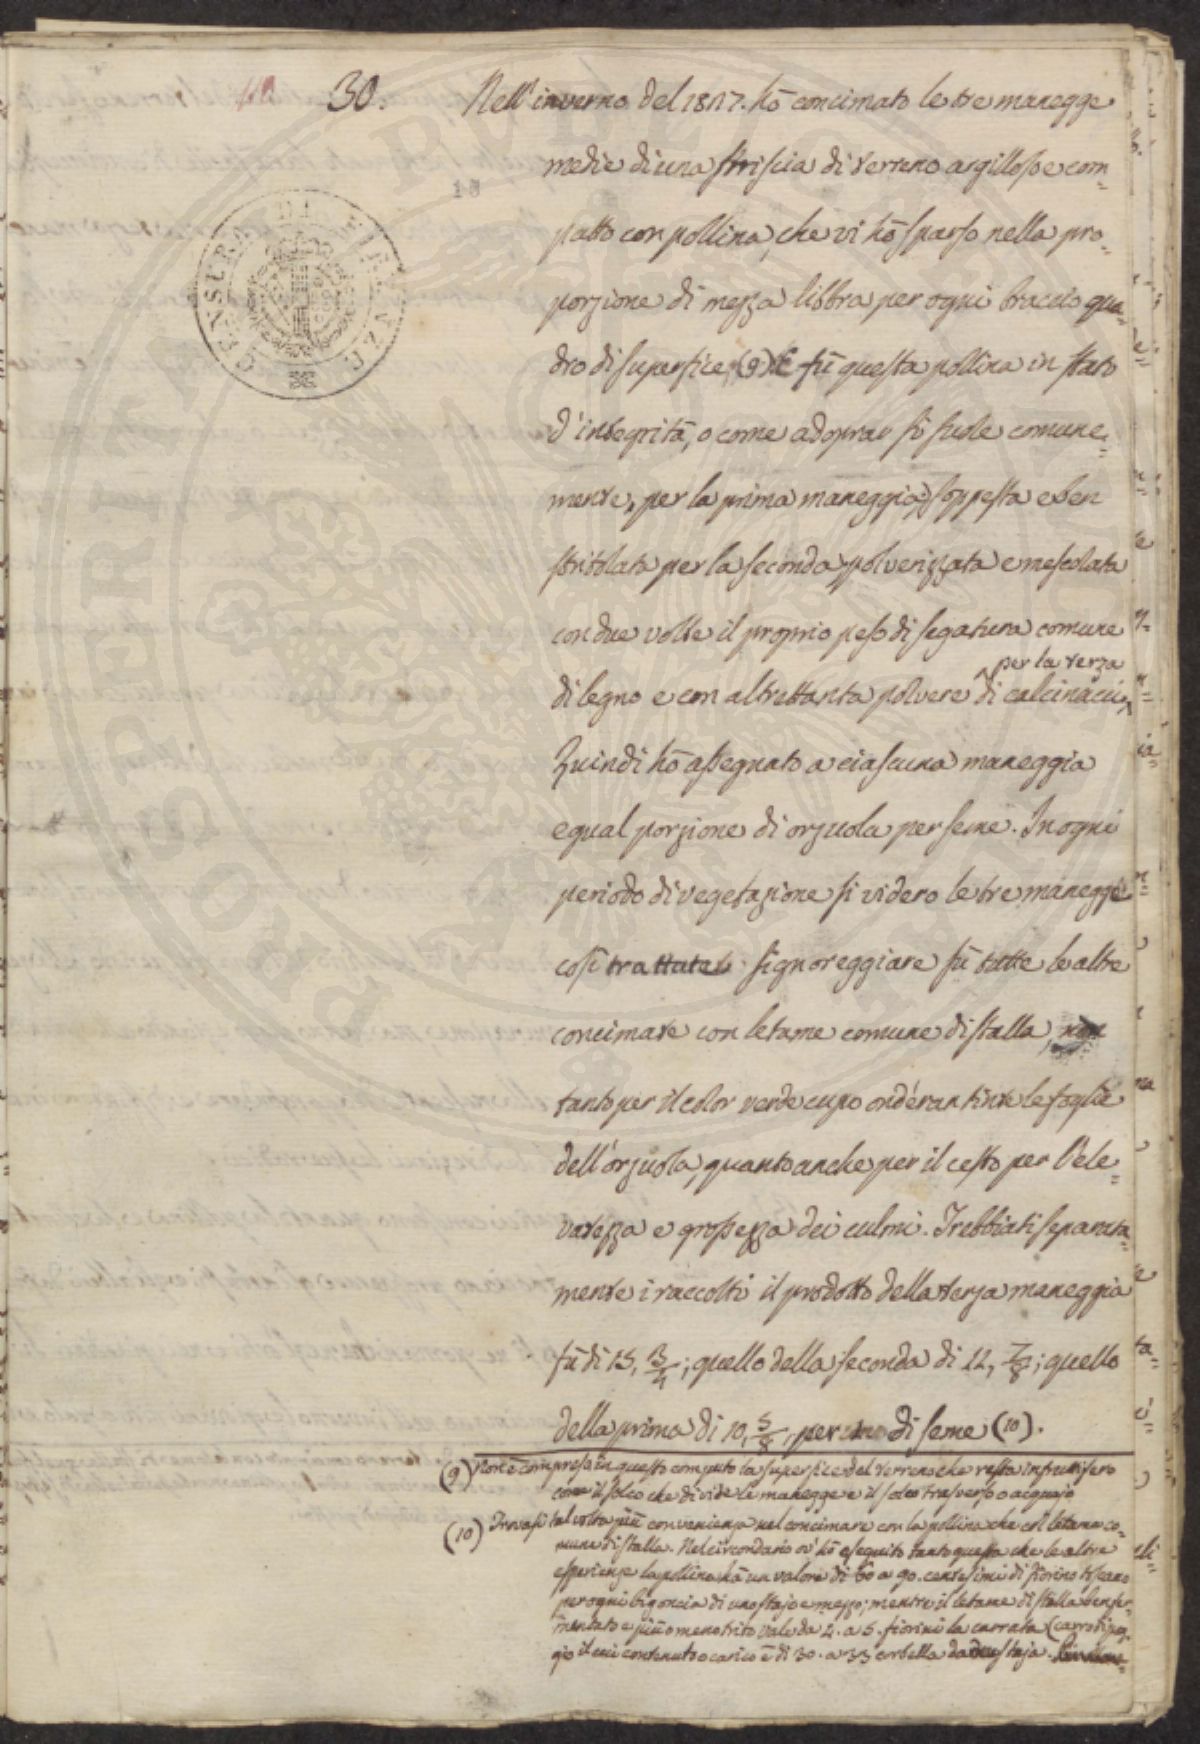 30.
Nell'inverno del 1817. hò concimato le tre maregge
medie di una striscia di terreno argilloso e com=
patto con pollina, che vi hò sparso nella pro=
porzione di mezza libbra per ogni braccio qua=
dro di superfice, (9) E fù questa pollina in stato
d'integrità, o come adoprar si suole comune=
mente, per la prima mareggia, soppesta e ben
stritolata per la seconda, polverizzata e mescolata
con due volte il proprio peso di segatura comune
per la terza
di legno e con altrettanta polvere di calcinacci,
Quindi hò assegnato a ciascuna mareggia
egual porzione di orzuola per seme. In ogni
periodo di vegetazione si videro le tre maregge
così trattate signoreggiare sù tutte le altre
concimate con letame comune di stalla, non
tanto per il color verde cupo ond'eran tinte le foglie
dell'orzuola, quanto anche per il cesto per l'ele=
vatezza e grossezza dei culmi. Trebbiati separata=
mente i raccolti il prodotto della terza mareggia
fù di 15, 3/4; quello della seconda di 12, 7/8; quello
della prima di 10, 5/8, per uno di seme (10).
(9) Non è compresa in questo computo la superfice del terreno che resta infruttifero
come il solco che divide le maregge e il solco trasverso o acquajo
(10) Trovasi talvolta più convenienza nel concimare con la pollina che col letame co=
mune di stalla. Nel circondario ov'hò eseguito tanto questa che le altre
esperienze la pollina hà un valore di 60 a 90. centesimi di fiorino toscano
per ogni bigoncia di uno stajo e mezzo; mentre il letame di stalla ben fer=
mentato e più o meno trito vale da 4. a 5. fiorini la carrata (carro
il cui contenuto o carico è di 30. a 35 corbella da due staja.
CENSURA DI FIRENZE